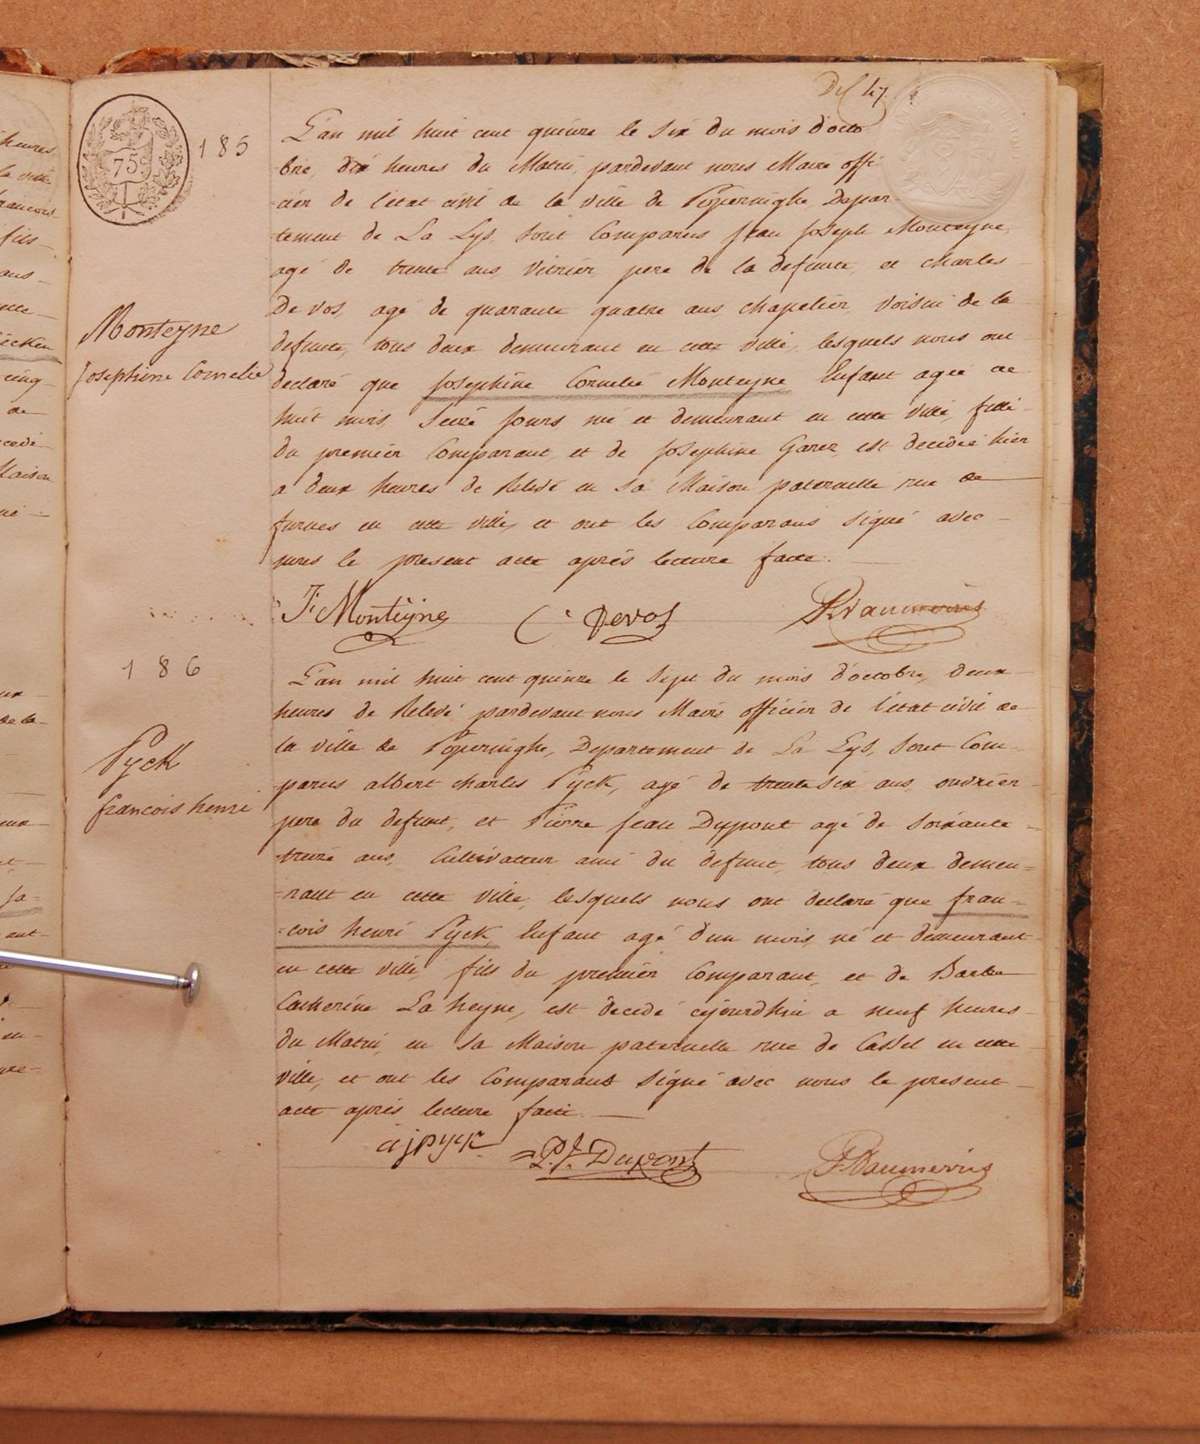 Del 47
75c
185
L'an mil huit cent quinze le Six du mois d'octo
bre, dix heures du Matin, pardevant nous Maire offi
-cier de l'etat civil de la ville de Poperinghe Depar-
-tement de La Lys, Sont Comparus Jean Joseph Monteyne,
agé de trente ans, Vitrier, pere de la defunte, et charles
De vos, agé de quarante quatre ans, chapelier, voisin de la
defunte, tous deux demeurant en cette ville, lesquels nous ont
Monteyne
Josephine Cornelie
declaré que Josephine Cornelie Monteyne Enfant agée de
huit mois, Seize Jours né et demeurant en cette ville, fille
du premier Comparant, et de Josephine Garez, est decedée hier
a deux heures de Relevé en Sa Maison paternelle rue de
furnes en cette ville, et ont les Comparans Signé avec
nous le present acte après lecture faite.
J. Monteyne C. Devos
186
L'an mil huit cent quinze le Sept du mois d'octobre, deux
heures de Relevé, pardevant nous Maire officier de l'état civil de
la ville de Poperinghe, Departement de La Lys, Sont Com-
Pyck
francois henri
parus albert charles Pyck, agé de trente Six ans, ouvrier
pere du defunt, et Pierre Jean Dupont agé de Soixante
treize ans, Cultivateur ami du defunt, tous deux demeu-
-rant en cette ville, lesquels nous ont declaré que fran-
-cois henri Pyck, Enfant agé d'un mois, né et demeurant
en cette ville, fils du premier Comparant, et de Barbe
Catherine La heyne, est decedé cejourdhui a neuf heures
du Matin, en Sa Maison paternelle rue de Cassel en cette
ville, et ont les Comparans Signé avec nous le present
acte après lecture faite.
a j pyck P. J. Dupont